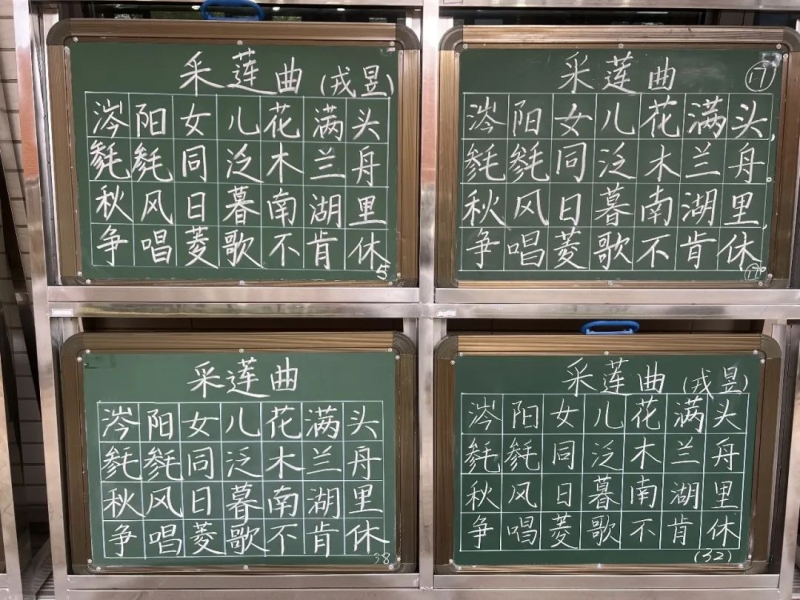 采莲曲(戎昱)
涔阳女儿花满头
毵毵同泛木兰舟
秋风日暮南湖里
争唱菱歌不肯休
5
采莲曲 ⑰
涔阳女儿花满头,
毵毵同泛木兰舟。
秋风日暮南湖里,
争唱菱歌不肯休
采莲曲
涔阳女儿花满头
毵毵同泛木兰舟
秋风日暮南湖里
争唱菱歌不肯休
38
采莲曲(戎昱)
涔阳女儿花满头
毵毵同泛木兰舟
秋风日暮南湖里
争唱菱歌不肯休
(32)